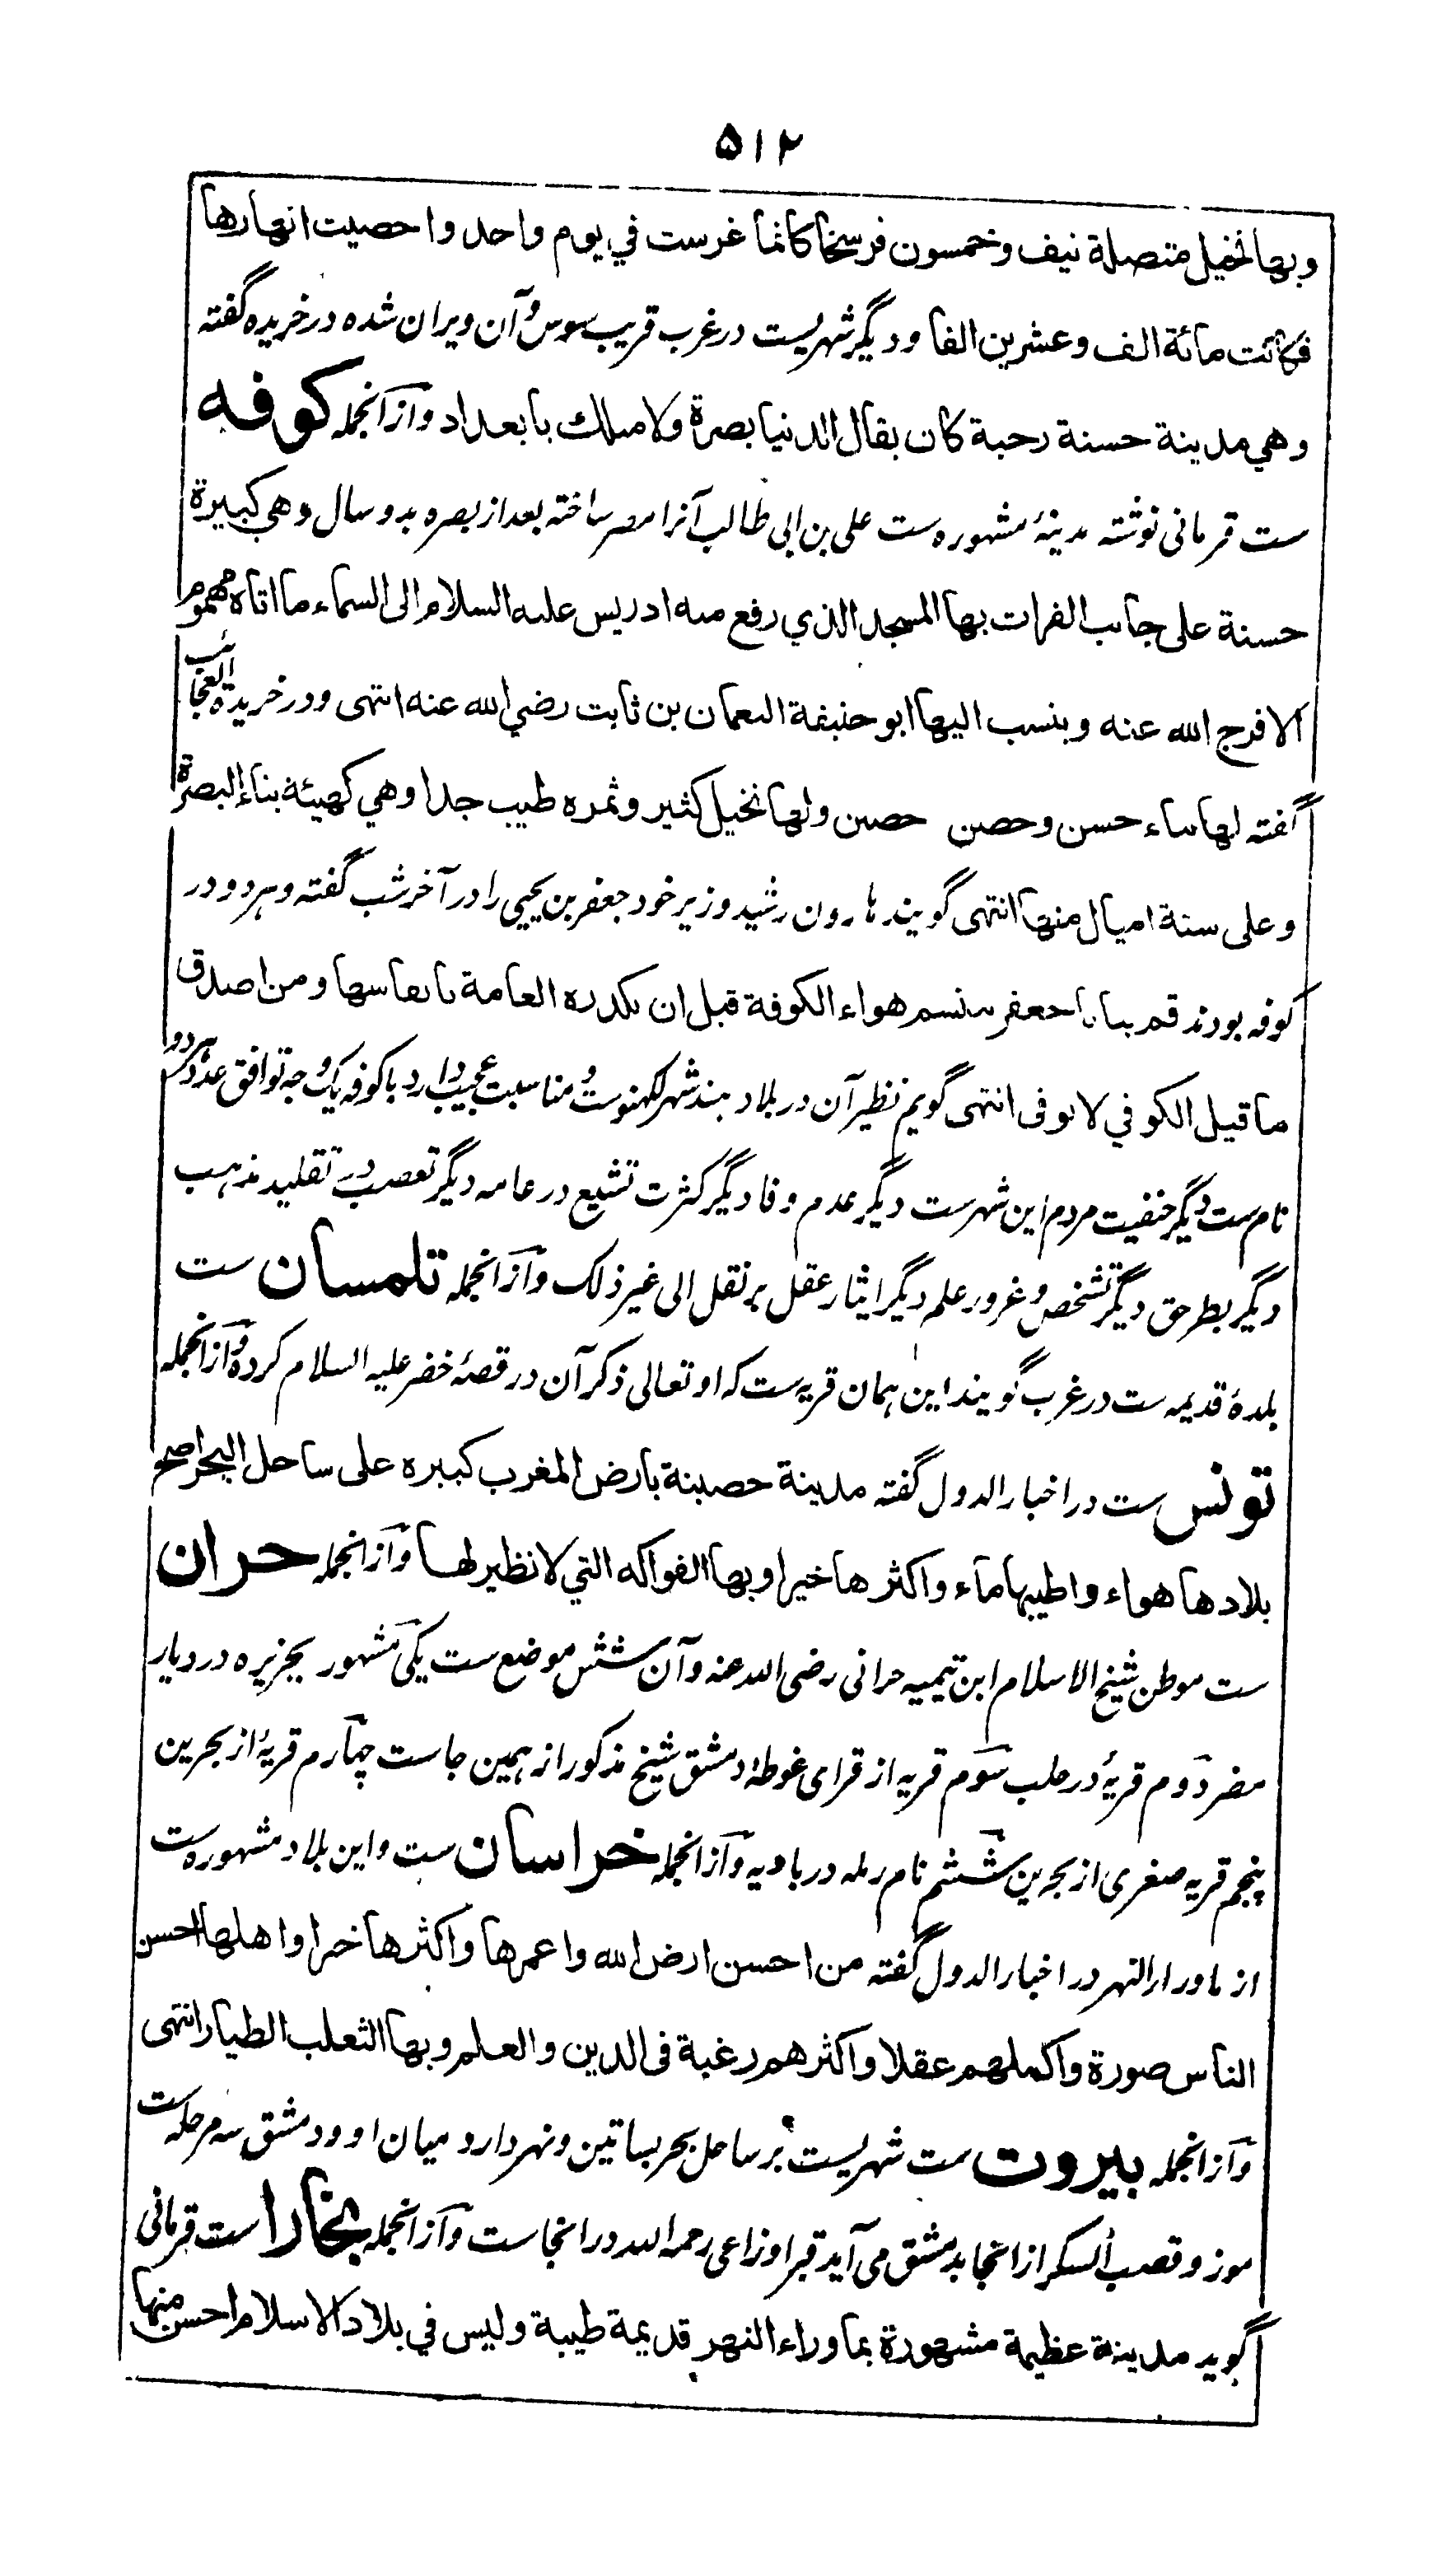 ۵۱۲
وبها نخيل متصلة نيف وخمسون فرسخا كانما غرست في يوم واحد واحصيت انهارها
فكانت مائة الف وعشرين الفا ودیگر شهریست در غرب قریب سوس وآن ویران شده در خریده گفته
وهي مدينة حسنة رحبة كان يقال الدنيا بصرة ولا مثلك يا بغداد وازانجمله کوفه
ست قرمانی نوشته مدینهٔ مشهوره ست علی بن ابی طالب آنرا مصر ساخته بعد از بصره بدو سال وهي كبيرة
حسنة على جانب الفرات بها المسجد الذي رفع منه ادريس عليه السلام الى السماء ما اتاه مهموم
الا فرج الله عنه وينسب اليها ابو حنيفة النعمان بن ثابت رضي الله عنه انتهى ودر خريدة العجائب
گفته لها بناء حسن وحصن حصين ولها نخيل كثير وثمره طيب جدا وهي كهيئة بناء البصرة
وعلى ستة اميال منها انتهى گویند هارون رشید وزیر خود جعفر بن یحیی را در آخر شب گفته وهر دو در
کوفه بودند قم بنا يا جعفر نتنسم هواء الكوفة قبل ان تكدره العامة بانفاسها ومن اصدق
ما قيل الكوفي لا يوفى انتهى گویم نظیر آن در بلاد هند شهر لکهنوست ومناسبت عجیب دارد با کوفه یک وجه توافق عدد هر دو
نام ست دیگر حنفیت مردم این شهرست دیگر عدم وفا دیگر کثرت تشیع در عامه دیگر تعصب در تقلید مذهب
دیگر بطر حق دیگر تشخص وغرور علم دیگر ایثار عقل بر نقل الی غیر ذلک وازانجمله تلمسان ست
بلدهٔ قدیمه ست در غرب گویند این همان قریه ست که او تعالی ذکر آن در قصهٔ خضر علیه السلام کرده وازانجمله
تونس ست در اخبار الدول گفته مدينة حصينة بارض المغرب كبيرة على ساحل البحر اصح
بلادها هواء واطيبها ماء واكثرها خيرا وبها الفواكه التي لا نظير لها وازانجمله حران
ست موطن شیخ الاسلام ابن تیمیه حرانی رضی الله عنه وآن شش موضع ست یکی مشهور بجزیره در دیار
مضر دوم قریهٔ در حلب سوم قریه از قرای غوطهٔ دمشق شیخ مذکور از همین جاست چهارم قریهٔ از بحرین
پنجم قریه صغری از بحرین ششم نام رمله در بادیه وازانجمله خراسان ست واین بلاد مشهوره ست
از ماوراء النهر در اخبار الدول گفته من احسن ارض الله واعمرها واكثرها خيرا واهلها احسن
الناس صورة واكملهم عقلا واكثرهم رغبة في الدين والعلم وبها الثعلب الطيار انتهى
وازانجمله بیروت ست شهریست بر ساحل بحر بساتین ونهر دارد میان او ودمشق سه مرحله ست
موز وقصب السکر ازانجا بدمشق می آید قبر اوزاعی رحمه الله درانجاست وازانجمله بخارا ست قرمانی
گوید مدينة عظيمة مشهورة بما وراء النهر قديمة طيبة وليس في بلاد الاسلام احسن منها